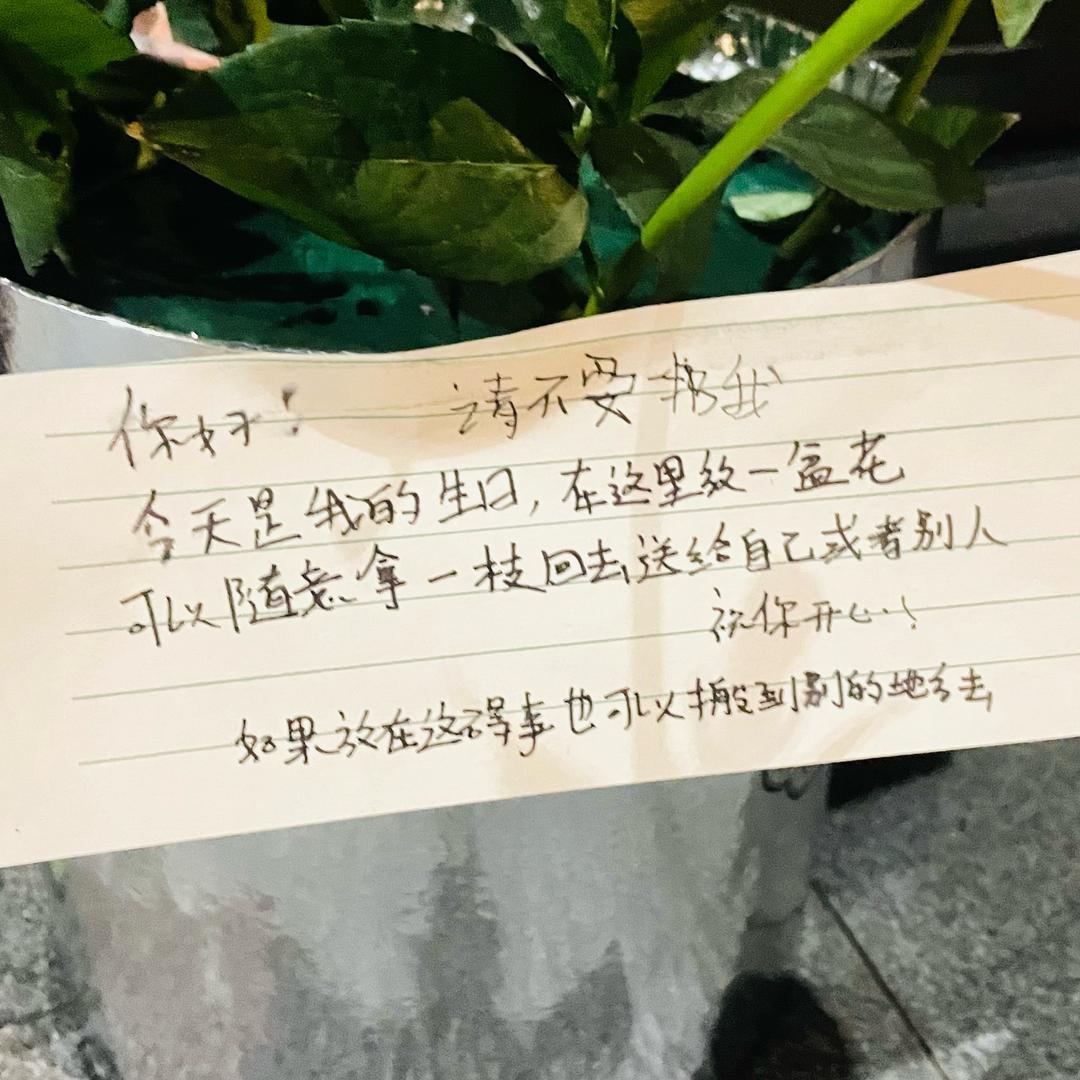 你好！ 请不要 我
今天是我的生日，在这里放一盆花
可以随意拿一枝回去送给自己或者别人
祝你开心！
如果放在这碍事也可以搬到别的地方去